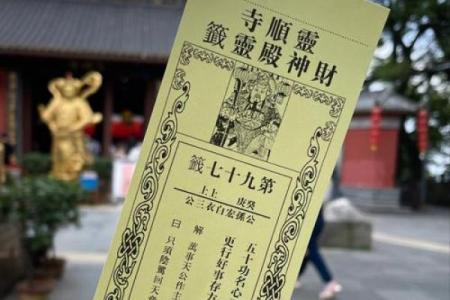 靈順寺
財神殿靈籤
第九十七籤
癸庚 上上
公孫宏白衣三公
五十功名心
更行好事存方
解 萬事天公作主
曰 只須陸